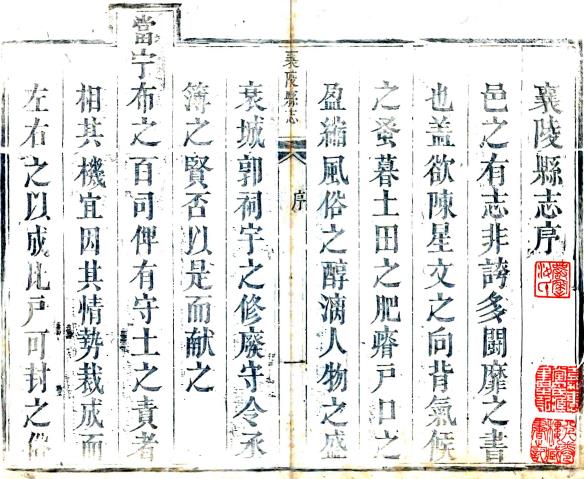 襄陵縣志序
邑之有志非誇多鬪靡之書
也盖欲陳星文之向背氣候
之蚤暮土田之肥瘠戸口之
盈縮風俗之醇漓人物之盛
襄陵縣志
序
一
衰城郭祠宇之修廢守令丞
簿之賢否以是而献之
當宁布之百司俾有守土之責者
相其機宜因其情勢裁成而
左右之以成比戸可封之俗